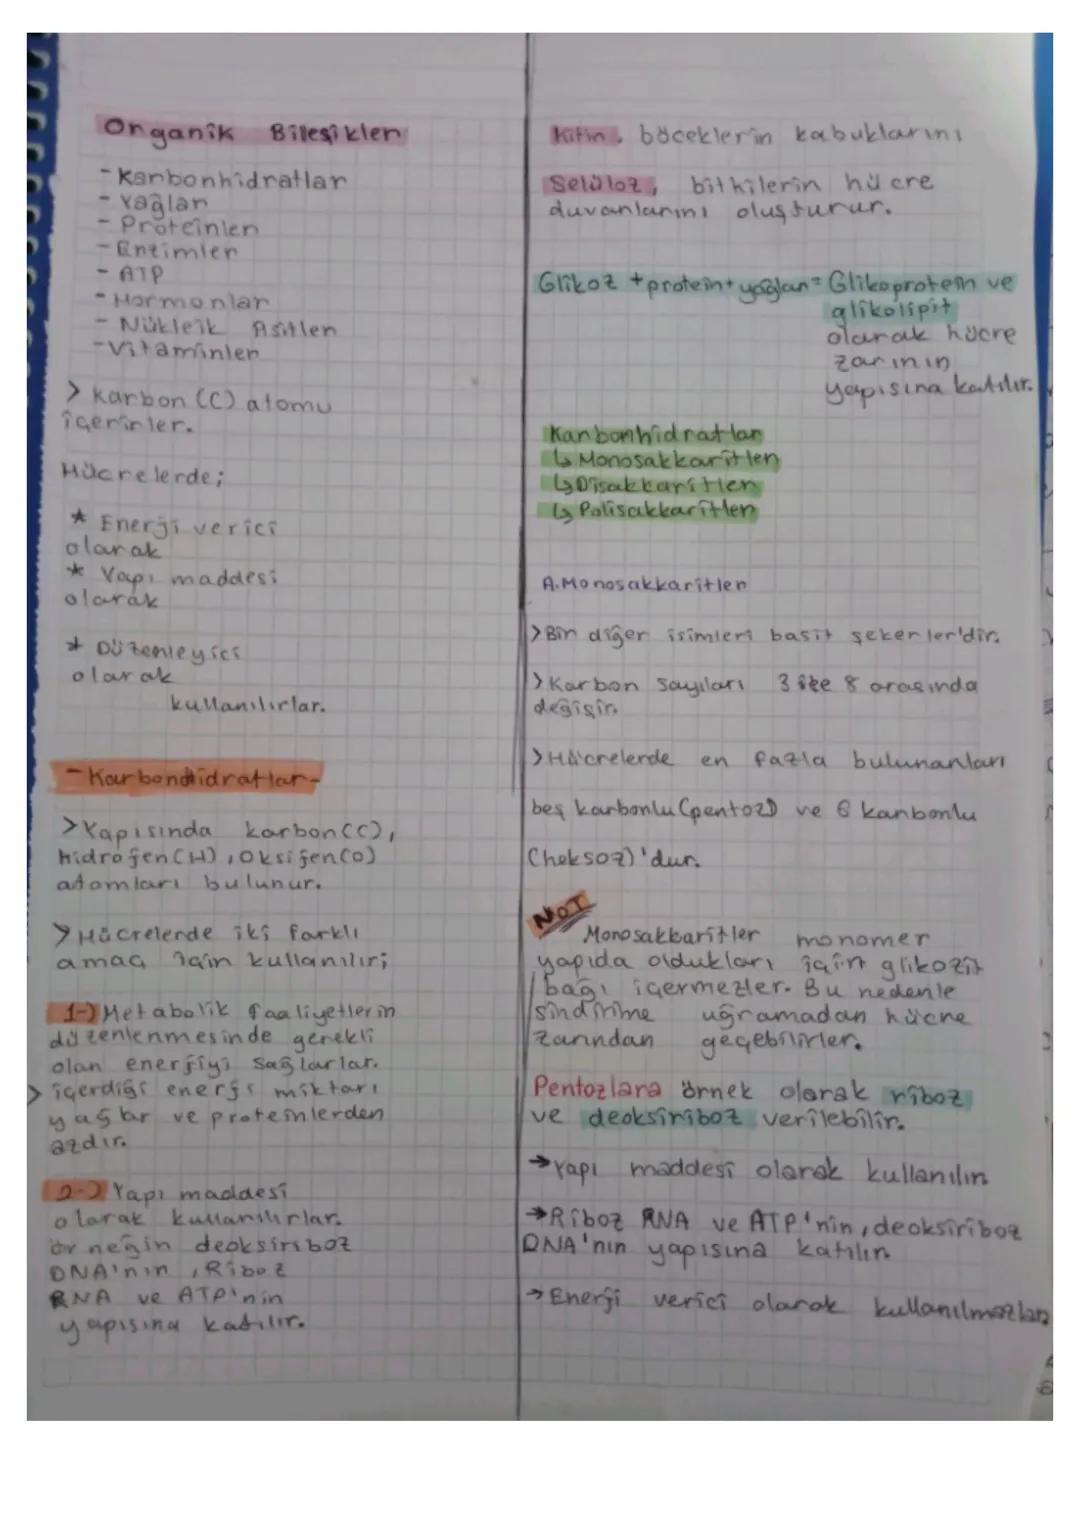 Organik Bileşikler
- Karbonhidratlar
- Yağlar
- Proteinler
- Enzimler
- ATP
- Hormonlar
- Nükleik Asitler
- Vitaminler
> Karbon (C) atomu
içerirler.
Hücrelerde;
* Enerji verici
olarak
* Yapı maddesi
olarak
* Düzenleyici
olarak
kullanılırlar.
- Karbonhidratlar -
> Yapısında karbon (C),
hidrojen (H), Oksijen (O)
atomları bulunur.
> Hücrelerde iki farklı
amaç için kullanılır;
1-) Metabolik faaliyetlerin
düzenlenmesinde gerekli
olan enerjiyi sağlarlar.
> içerdiği enerji miktarı
yağlar ve proteinlerden
azdır.
2-) Yapı maddesi
olarak kullanılırlar.
örneğin deoksiriboz
DNA'nın, Riboz
RNA ve ATP'nin
yapısına katılır.
Kitin, böceklerin kabuklarını
Selüloz, bitkilerin hücre
duvarlarını oluşturur.
Glikoz + protein + yağlar = Glikoprotein ve
glikolipit
olarak hücre
zarının
yapısına katılır.
Karbonhidratlar
↳ Monosakkaritler
↳ Disakkaritler
↳ Polisakkaritler
A. Monosakkaritler
> Bir diğer isimleri basit şekerler'dir.
> Karbon sayıları 3 ile 8 arasında
değişir.
> Hücrelerde en fazla bulunanları
beş karbonlu (pentoz) ve 6 karbonlu
(heksoz)'dur.
NOT
Monosakkaritler monomer
yapıda oldukları için glikozit
bağı içermezler. Bu nedenle
sindirime uğramadan hücre
zarından geçebilirler.
Pentozlara örnek olarak riboz
ve deoksiriboz verilebilir.
→ Yapı maddesi olarak kullanılır.
→ Riboz RNA ve ATP'nin, deoksiriboz
DNA'nın yapısına katılır.
→ Enerji verici olarak kullanılmazlar.